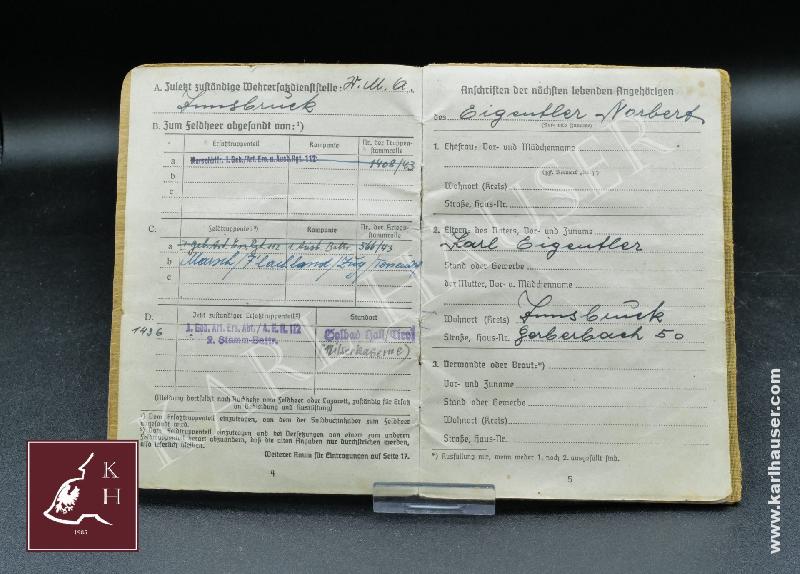 A. Zuletzt zuständige Wehrersatzdienststelle: W. M. A.
Innsbruck
B. Zum Feldheer abgesandt von:¹)
Ersatztruppenteil
Kompanie
Nr. der Truppen-
stammrolle
a
1408/43
b
c
C.
Feldtruppenteil²)
Kompanie
Nr. der Kriegs-
stammrolle
a
566/43
b Marsch/Flachland/Zug/
c
D.
Jetzt zuständiger Ersatztruppenteil³)
Standort
1436
1. Geb. Art. Ers. Abt./A.E.R. 112
2. Stamm-Battr.
Solbad Hall/Tirol
(Meldung dortselbst nach Rückkehr vom Feldheer oder Lazarett, zuständig für Ersatz
an Bekleidung und Ausrüstung)
¹) Vom Ersatztruppenteil einzutragen, von dem der Soldbuchinhaber zum Feldheer
abgesandt wird.
²) Vom Feldtruppenteil einzutragen und bei Versetzungen von einem zum anderen
Feldtruppenteil derart abzuändern, daß die alten Angaben nur durchstrichen werden,
also leserlich bleiben.
Weiterer Raum für Eintragungen auf Seite 17.
4
Anschriften der nächsten lebenden Angehörigen
des Eigentler Norbert
(Vor- und Zuname)
1. Ehefrau: Vor- und Mädchenname
(ggf. Vermerk „ledig“)
Wohnort (Kreis)
Straße, Haus-Nr.
2. Eltern: des Vaters, Vor- und Zuname
Karl Eigentler
Stand oder Gewerbe
der Mutter, Vor- u. Mädchenname
Wohnort (Kreis) Innsbruck
Straße, Haus-Nr. Gerberbach 50
3. Verwandte oder Braut:*)
Vor- und Zuname
Stand oder Gewerbe
Wohnort (Kreis)
Straße, Haus-Nr.
*) Ausfüllung nur, wenn weder 1. noch 2. ausgefüllt sind.
5
KARL HAUSER
K
H
1985
www.karlhauser.com